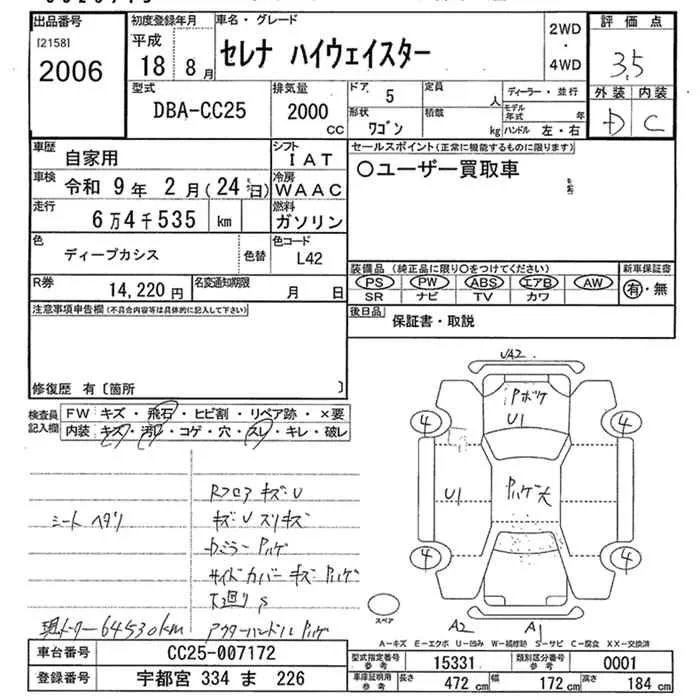 出品番号
[2158]
2006
初度登録年月
平成
18 8月
車名・グレード
セレナ ハイウェイスター
2WD
・
4WD
評価点
3.5
外装 内装
D C
型式
DBA-CC25
排気量
2000
cc
ドア 5
形状 ワゴン
定員 人
積載 kg
ディーラー・並行
モデル年式 年
ハンドル 左・右
車歴 自家用
車検 令和 9年 2月(24日)
走行 6万4千535 km
シフト IAT
冷房 WAAC
燃料 ガソリン
色 ディープカシス
色替
色コード L42
R券 14,220円
名変通知期限 月 日
セールスポイント(正常に機能するものに限ります)
〇ユーザー買取車
装備品(純正品に限り〇をつけてください)
PS PW ABS エアB AW
SR ナビ TV カワ
新車保証書
有・無
後日品 保証書・取説
注意事項申告欄(不具合内容等は具体的に記入して下さい)
修復歴 有〔箇所 〕
検査員記入欄
FW キズ・飛石・ヒビ割・リペア跡・×要
内装 キズ・汚レ・コゲ・穴・スレ・キレ・破レ
シート ヘタリ
Rフロア キズ・U
キズ・U スリキズ
Pハゲ
サイド カバー キズ Pハゲ
下廻り S
アウターハンドル Pハゲ
現メーター 64530km
UA2
Pボケ
U1
4
4
U1
Pハゲ大
4
4
A2
A1
スペア
A-キズ E-エクボ U-凹み W-補修跡 S-サビ C-腐食 XX-交換済
車台番号 CC25-007172
登録番号 宇都宮 334 ま 226
型式指定番号 参考 15331
類別区分番号 参考 0001
車庫証明用 参考 長さ 472cm 幅 172cm 高さ 184cm